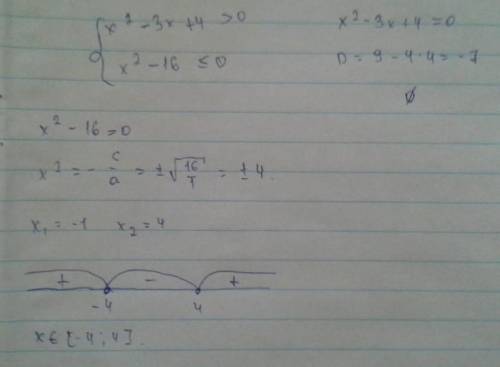 { x² - 3x + 4 > 0
x² - 16 ≤ 0
x² - 3x + 4 = 0
D = 9 - 4·4 = -7
∅
x² - 16 = 0
x² = - c/a = ±√(16/1) = ± 4.
x₁ = -4 x₂ = 4
+ - +
-4 4
x ∈ [-4 ; 4].